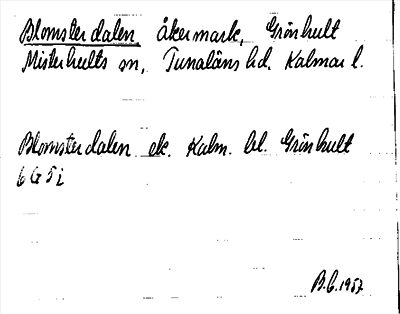 Blomsterdalen, åkermark, Grönhult
Misterhults sn, Tunaläns hd. Kalmar l.
Blomsterdalen ek. Kalm. bl. Grönhult
6G5i
B.G. 1957